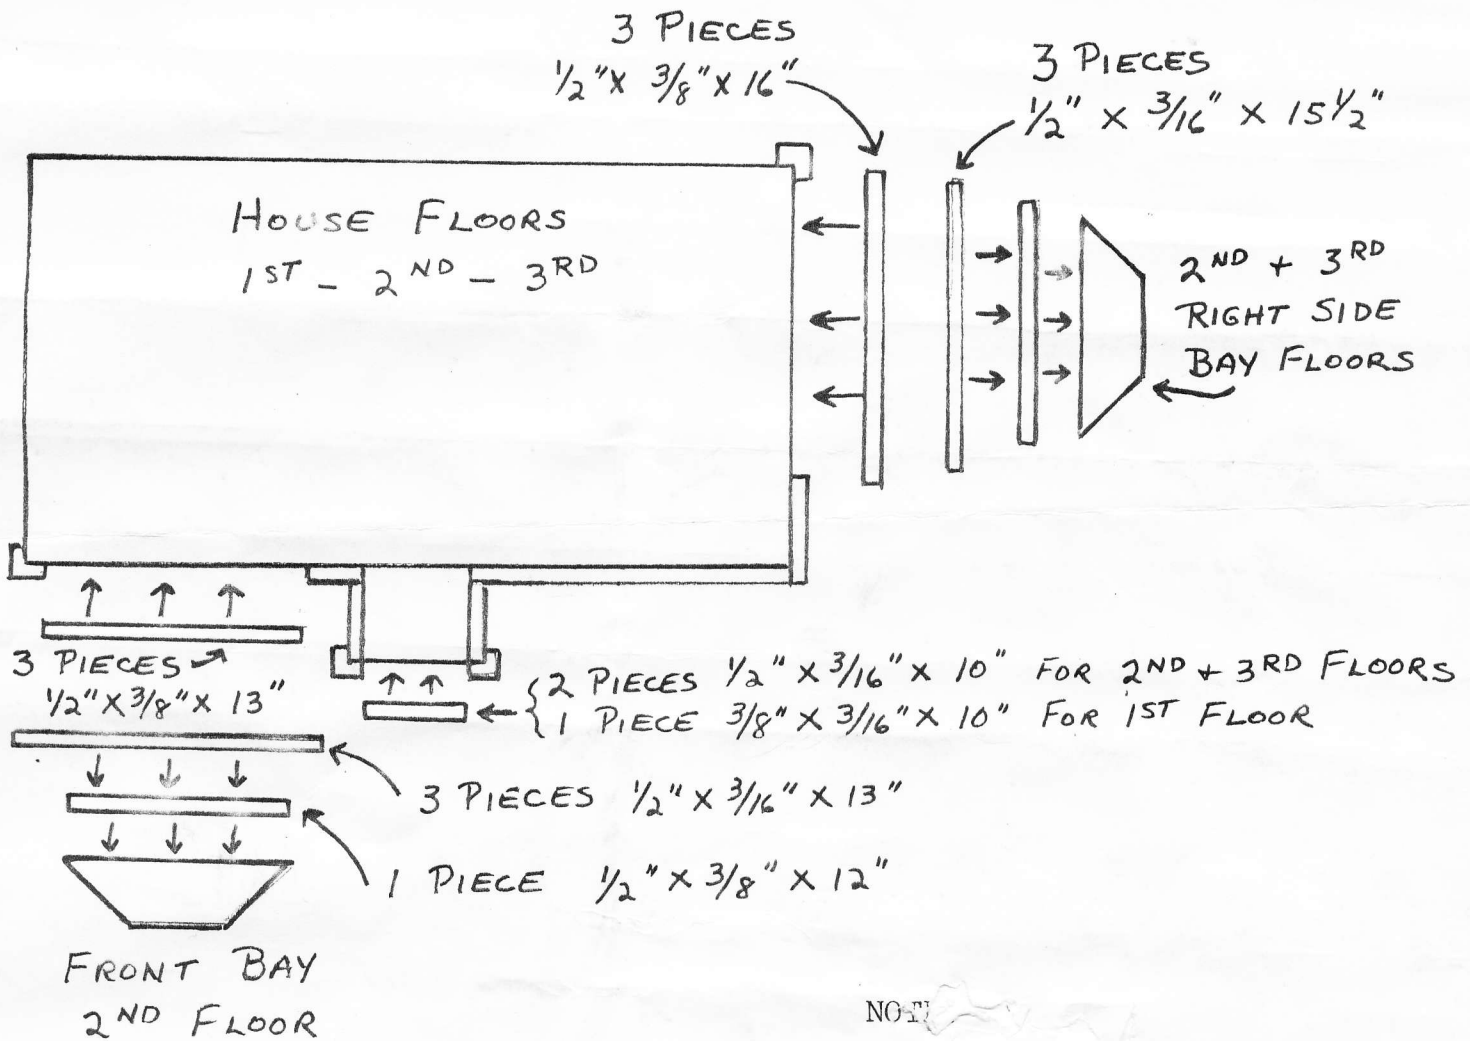 3 PIECES
1/2" X 3/8" X 16"
3 PIECES
1/2" X 3/16" X 15 1/2"
HOUSE FLOORS
1ST - 2ND - 3RD
2ND + 3RD
RIGHT SIDE
BAY FLOORS
3 PIECES
1/2" X 3/8" X 13"
2 PIECES 1/2" X 3/16" X 10" FOR 2ND + 3RD FLOORS
1 PIECE 3/8" X 3/16" X 10" FOR 1ST FLOOR
3 PIECES 1/2" X 3/16" X 13"
1 PIECE 1/2" X 3/8" X 12"
FRONT BAY
2ND FLOOR